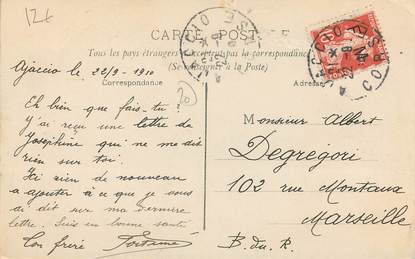 12f
CARTE POSTALE
Tous les pays étrangers n'acceptent pas la correspondance
(Se renseigner à la Poste)
Correspondance
Adresse
AJACCIO
CORSE
Ajaccio le 22/9-1910
20
Eh bien que fais-tu?
J'ai reçu une lettre de
Josephine qui ne me dis
rien sur toi.
Ici rien de nouveau
a ajouter à ce que je vous
ai dit sur ma dernière
lettre. Suis en bonne santé
Ton frère Fortuné
Monsieur Albert
Degrégori
102 rue Montaux
Marseille
B. du R.